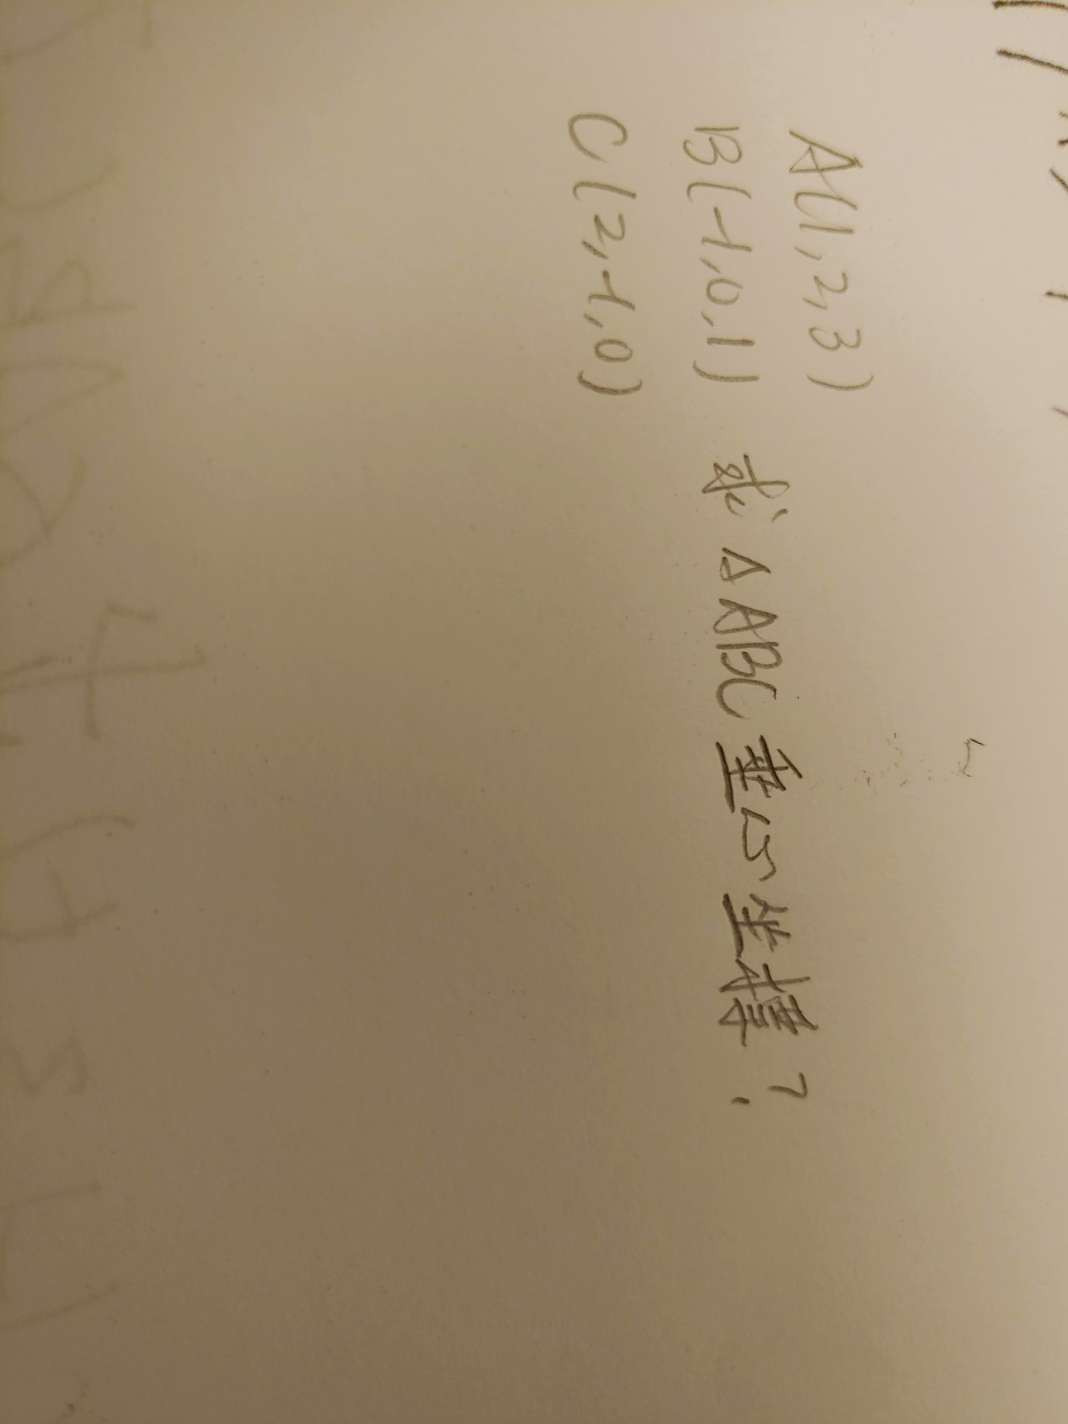 A(1,2,3)
B(-1,0,1) 求△ABC垂心坐標?
C(2,-1,0)